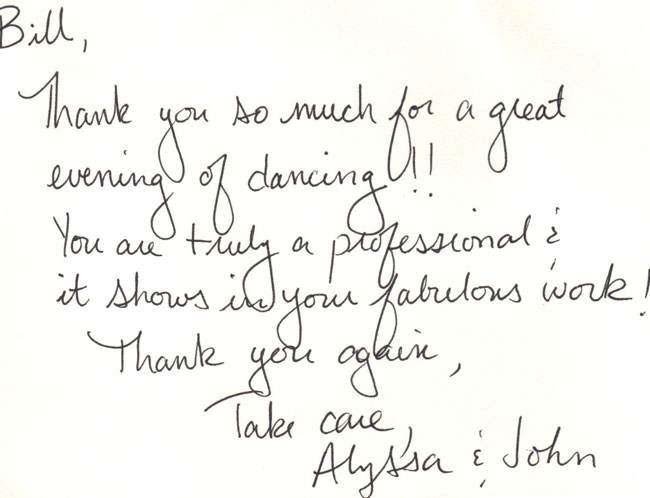 Bill,
Thank you so much for a great
evening of dancing!!
You are truly a professional &
it shows in your fabulous work!
Thank you again,
Take care,
Alyssa & John